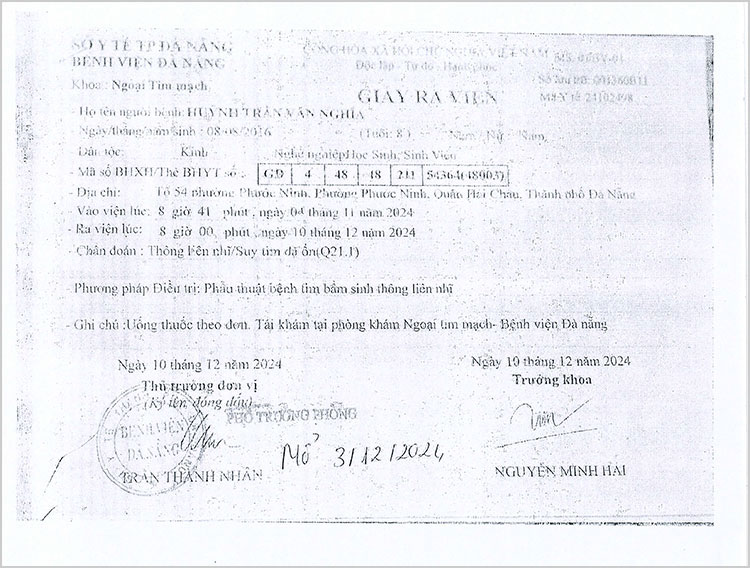 SỞ Y TẾ TP.ĐÀ NẴNG
BỆNH VIỆN ĐÀ NẴNG
Khoa: Ngoại Tim mạch
CỘNG HÒA XÃ HỘI CHỦ NGHĨA VIỆT NAM
Độc lập - Tự do - Hạnh phúc
MS: 01/BV-01
Mã Y tế 24102498
GIẤY RA VIỆN
- Họ tên người bệnh: HUỲNH TRẦN VĂN NGHĨA
- Ngày/tháng/năm sinh : 08-08-2016 (Tuổi: 8 ) Nam/ Nữ : Nam.
- Dân tộc: Kinh Nghề nghiệp Học Sinh, Sinh Viên
- Mã số BHXH/Thẻ BHYT số : GD 4 48 48 211 54364(48003)
- Địa chỉ: Tổ 54 phường Phước Ninh, Phường Phước Ninh, Quận Hải Châu, Thành phố Đà Nẵng
- Vào viện lúc: 8 giờ 41 phút , ngày 04 tháng 11 năm 2024
- Ra viện lúc: 8 giờ 00 phút , ngày 10 tháng 12 năm 2024
- Chẩn đoán : Thông liên nhĩ/Suy tim đã ổn(Q21.1)
- Phương pháp Điều trị: Phẫu thuật bệnh tim bẩm sinh thông liên nhĩ
- Ghi chú :Uống thuốc theo đơn. Tái khám tại phòng khám Ngoại tim mạch- Bệnh viện Đà nẵng
Ngày 10 tháng 12 năm 2024
Thủ trưởng đơn vị
(Ký tên, đóng dấu)
PHÓ TRƯỞNG PHÒNG
BỆNH VIỆN
ĐÀ NẴNG
TRẦN THÀNH NHÂN
Mổ 3/12/2024
Ngày 10 tháng 12 năm 2024
Trưởng khoa
NGUYỄN MINH HẢI